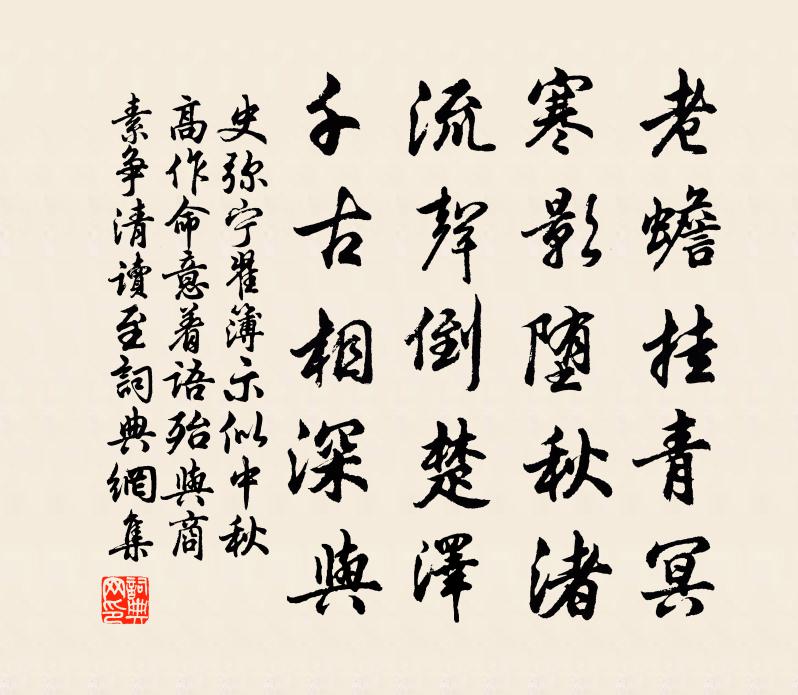 老蟾挂青冥
寒影堕秋渚
流聲倒楚澤
千古相深與
史弥宁翟簿示似中秋
高作命意着语殆與商
素争清讀至詞典網集
詞典网印